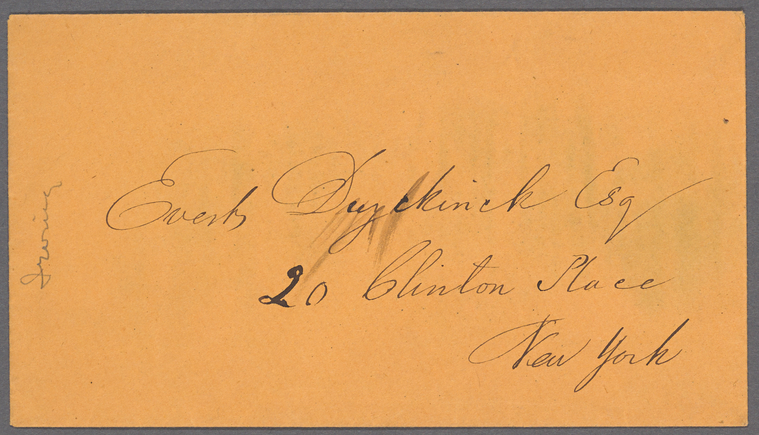 Everts Duyckinck Esq
20 Clinton Place
New York
Irving